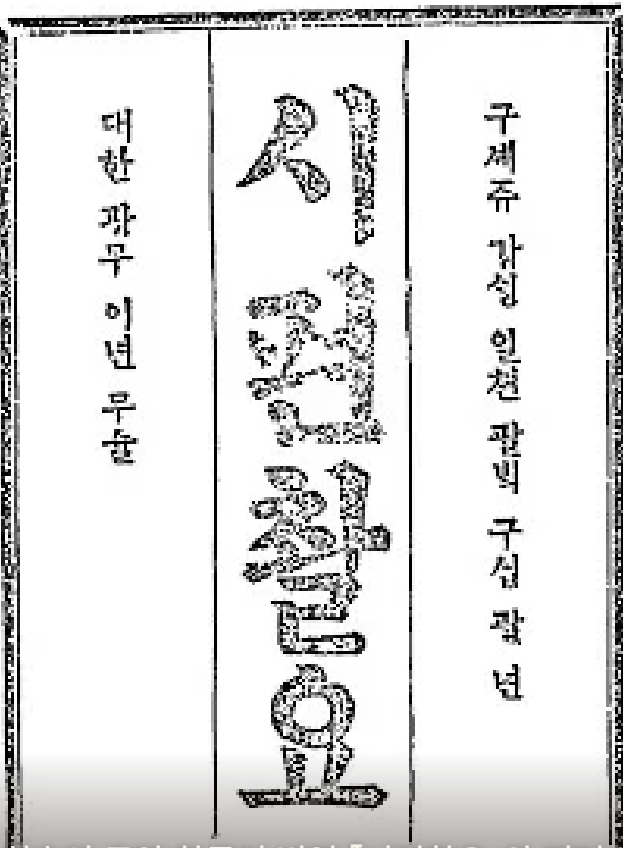 구셰쥬 강싱 일쳔 팔빅 구십 팔 년
시편촬요
대한 광무 이년 무슐